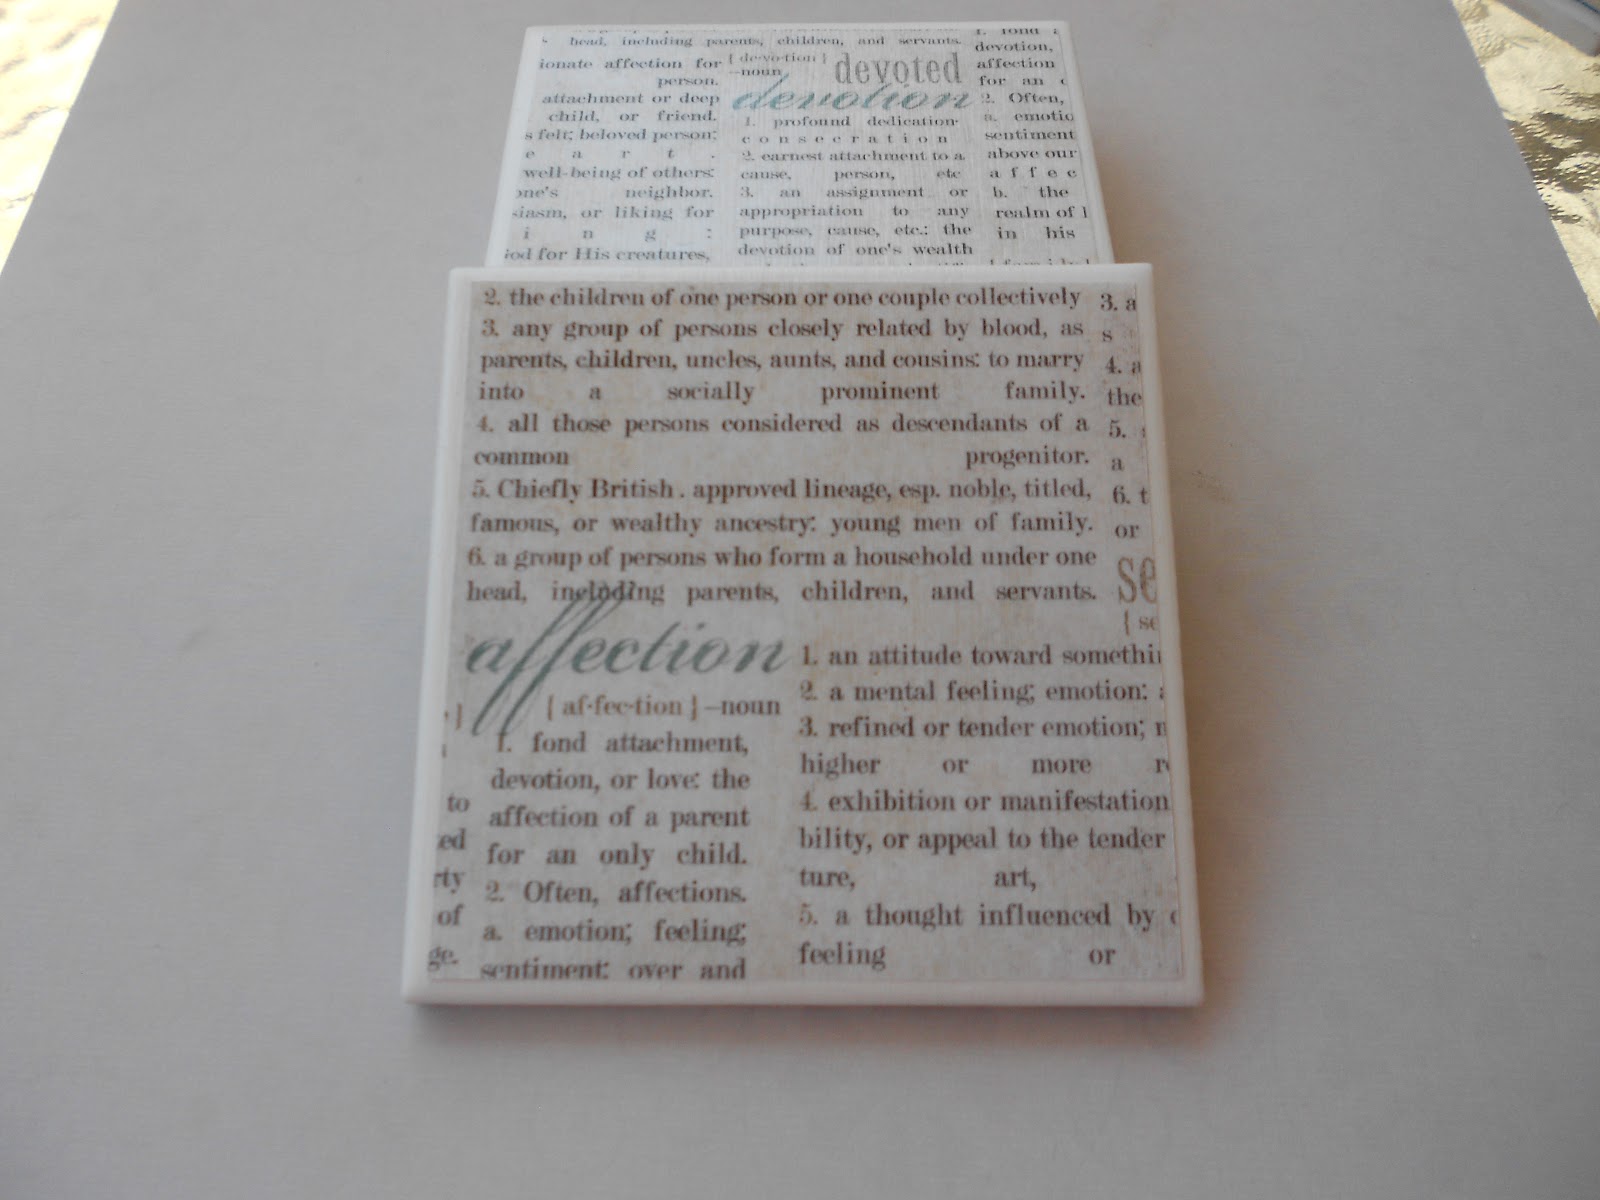 head, including parents, children, and servants.
ionate affection for
person.
attachment or deep
child, or friend.
s felt; beloved person;
e a r t .
well-being of others:
one's neighbor.
siasm, or liking for
i n g :
od for His creatures,
{ de·vo·tion }
–noun
devoted
devotion
1. profound dedication
consecration
2. earnest attachment to a
cause, person, etc
3. an assignment or
appropriation to any
purpose, cause, etc.: the
devotion of one's wealth
1. fond
devotion,
affection
for an
2. Often,
a. emotio
sentiment
above our
a f f e c
b. the
realm of
in his
2. the children of one person or one couple collectively
3. any group of persons closely related by blood, as
parents, children, uncles, aunts, and cousins: to marry
into a socially prominent family.
4. all those persons considered as descendants of a
common progenitor.
5. Chiefly British. approved lineage, esp. noble, titled,
famous, or wealthy ancestry: young men of family.
6. a group of persons who form a household under one
head, including parents, children, and servants.
3. a
s
4. a
the
5.
a
6. t
or
se
{ se
affection
{ af·fec·tion } –noun
1. fond attachment,
devotion, or love: the
affection of a parent
for an only child.
2. Often, affections.
a. emotion; feeling;
sentiment: over and
to
ed
rty
of
ge.
1. an attitude toward somethi
2. a mental feeling; emotion:
3. refined or tender emotion;
higher or more
4. exhibition or manifestation
bility, or appeal to the tender
ture, art,
5. a thought influenced by
feeling or